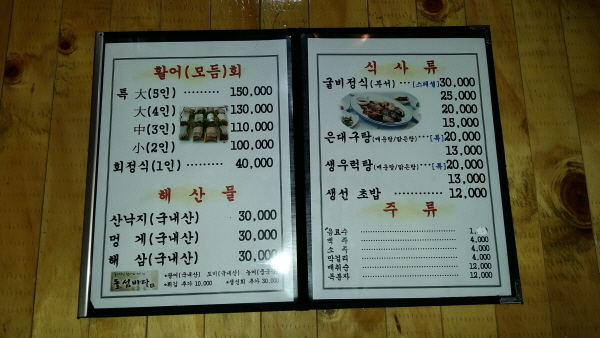 활어(모듬)회
특 大(5인) ········· 150,000
大(4인) 130,000
中(3인) 110,000
小(2인) 100,000
회정식(1인) ········· 40,000
해 산 물
산낙지(국내산) 30,000
멍 게(국내산) 30,000
해 삼(국내산) 30,000
돌섬바다
*광어(국내산) 도미(국내산) 농어(국내산)
*튀김 추가 10,000 *생선회 추가 30,000
식 사 류
굴비정식(부서)···[스페셜]30,000
25,000
20,000
15,000
은대구탕(매운탕/맑은탕)···[특]20,000
13,000
생우럭탕(매운탕/맑은탕)···[특]20,000
13,000
생선 초밥 ············ 12,000
주 류
음료수 1,
맥 주 4,000
소 주 4,000
막걸리 4,000
매취순 12,000
복분자 12,000